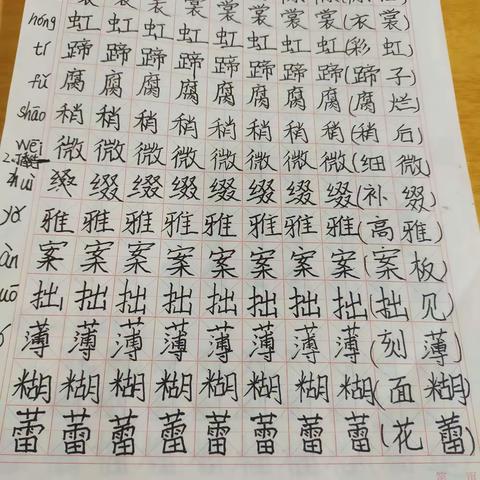 裳 裳 裳 裳 裳 裳 裳 裳 (衣 裳)
hóng 虹 虹 虹 虹 虹 虹 虹 虹 (彩 虹)
tí 蹄 蹄 蹄 蹄 蹄 蹄 蹄 蹄 (蹄 子)
fǔ 腐 腐 腐 腐 腐 腐 腐 腐 (腐 烂)
shāo 稍 稍 稍 稍 稍 稍 稍 稍 (稍 后)
wēi 微 微 微 微 微 微 微 微 (细 微)
缀 缀 缀 缀 缀 缀 缀 缀 (补 缀)
yǎ 雅 雅 雅 雅 雅 雅 雅 雅 (高 雅)
àn 案 案 案 案 案 案 案 案 (案 板)
uō 拙 拙 拙 拙 拙 拙 拙 拙 (拙 见)
薄 薄 薄 薄 薄 薄 薄 薄 (刻 薄)
糊 糊 糊 糊 糊 糊 糊 糊 (面 糊)
蕾 蕾 蕾 蕾 蕾 蕾 蕾 蕾 (花 蕾)